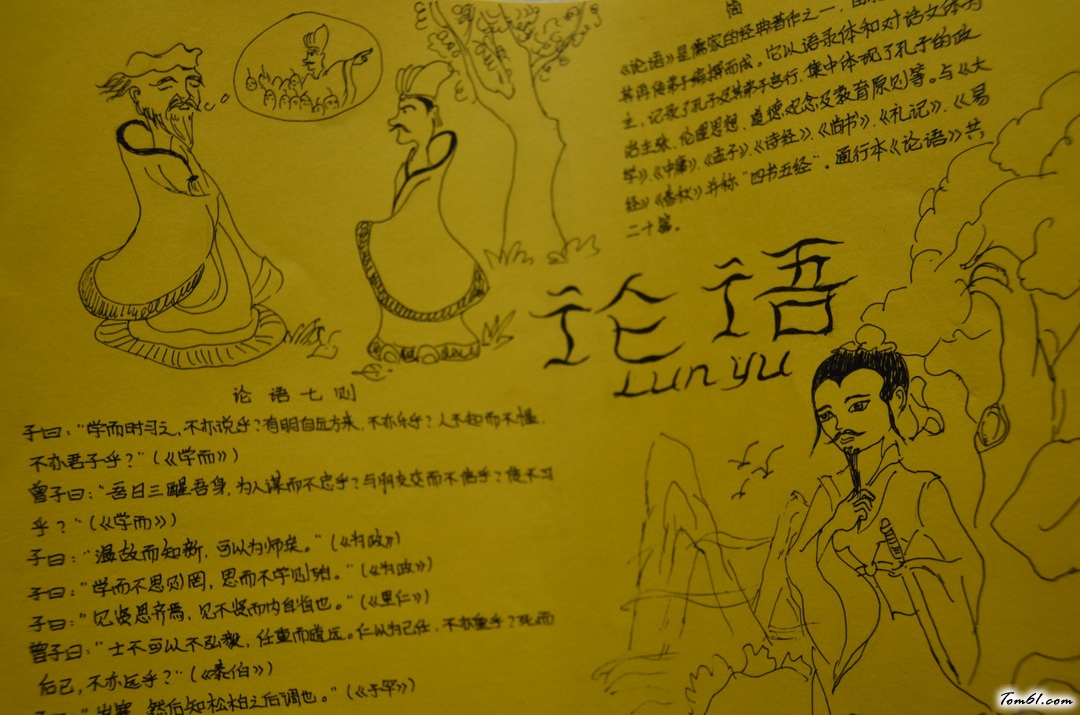 简
《论语》是儒家的经典著作之一，由
其再传弟子编撰而成。它以语录体和对话文体为
主，记录了孔子及其弟子言行，集中体现了孔子的政
治主张、伦理思想、道德观念及教育原则等。与《大
学》、《中庸》、《孟子》、《诗经》、《尚书》、《礼记》、《易
经》《春秋》并称“四书五经”。通行本《论语》共
二十篇。
论语
Lun yu
论语七则
子曰：“学而时习之，不亦说乎？有朋自远方来，不亦乐乎？人不知而不愠，
不亦君子乎？”（《学而》）
曾子曰：“吾日三醒吾身，为人谋而不忠乎？与朋友交而不信乎？传不习
乎？”（《学而》）
子曰：“温故而知新，可以为师矣。”（《为政》）
子曰：“学而不思则罔，思而不学则殆。”（《为政》）
子曰：“见贤思齐焉，见不贤而内自省也。”（《里仁》）
曾子曰：“士不可以不弘毅，任重而道远。仁以为己任，不亦重乎？死而
后已，不亦远乎？”（《泰伯》）
子曰：“岁寒，然后知松柏之后凋也。”（《子罕》）
Tom61.com